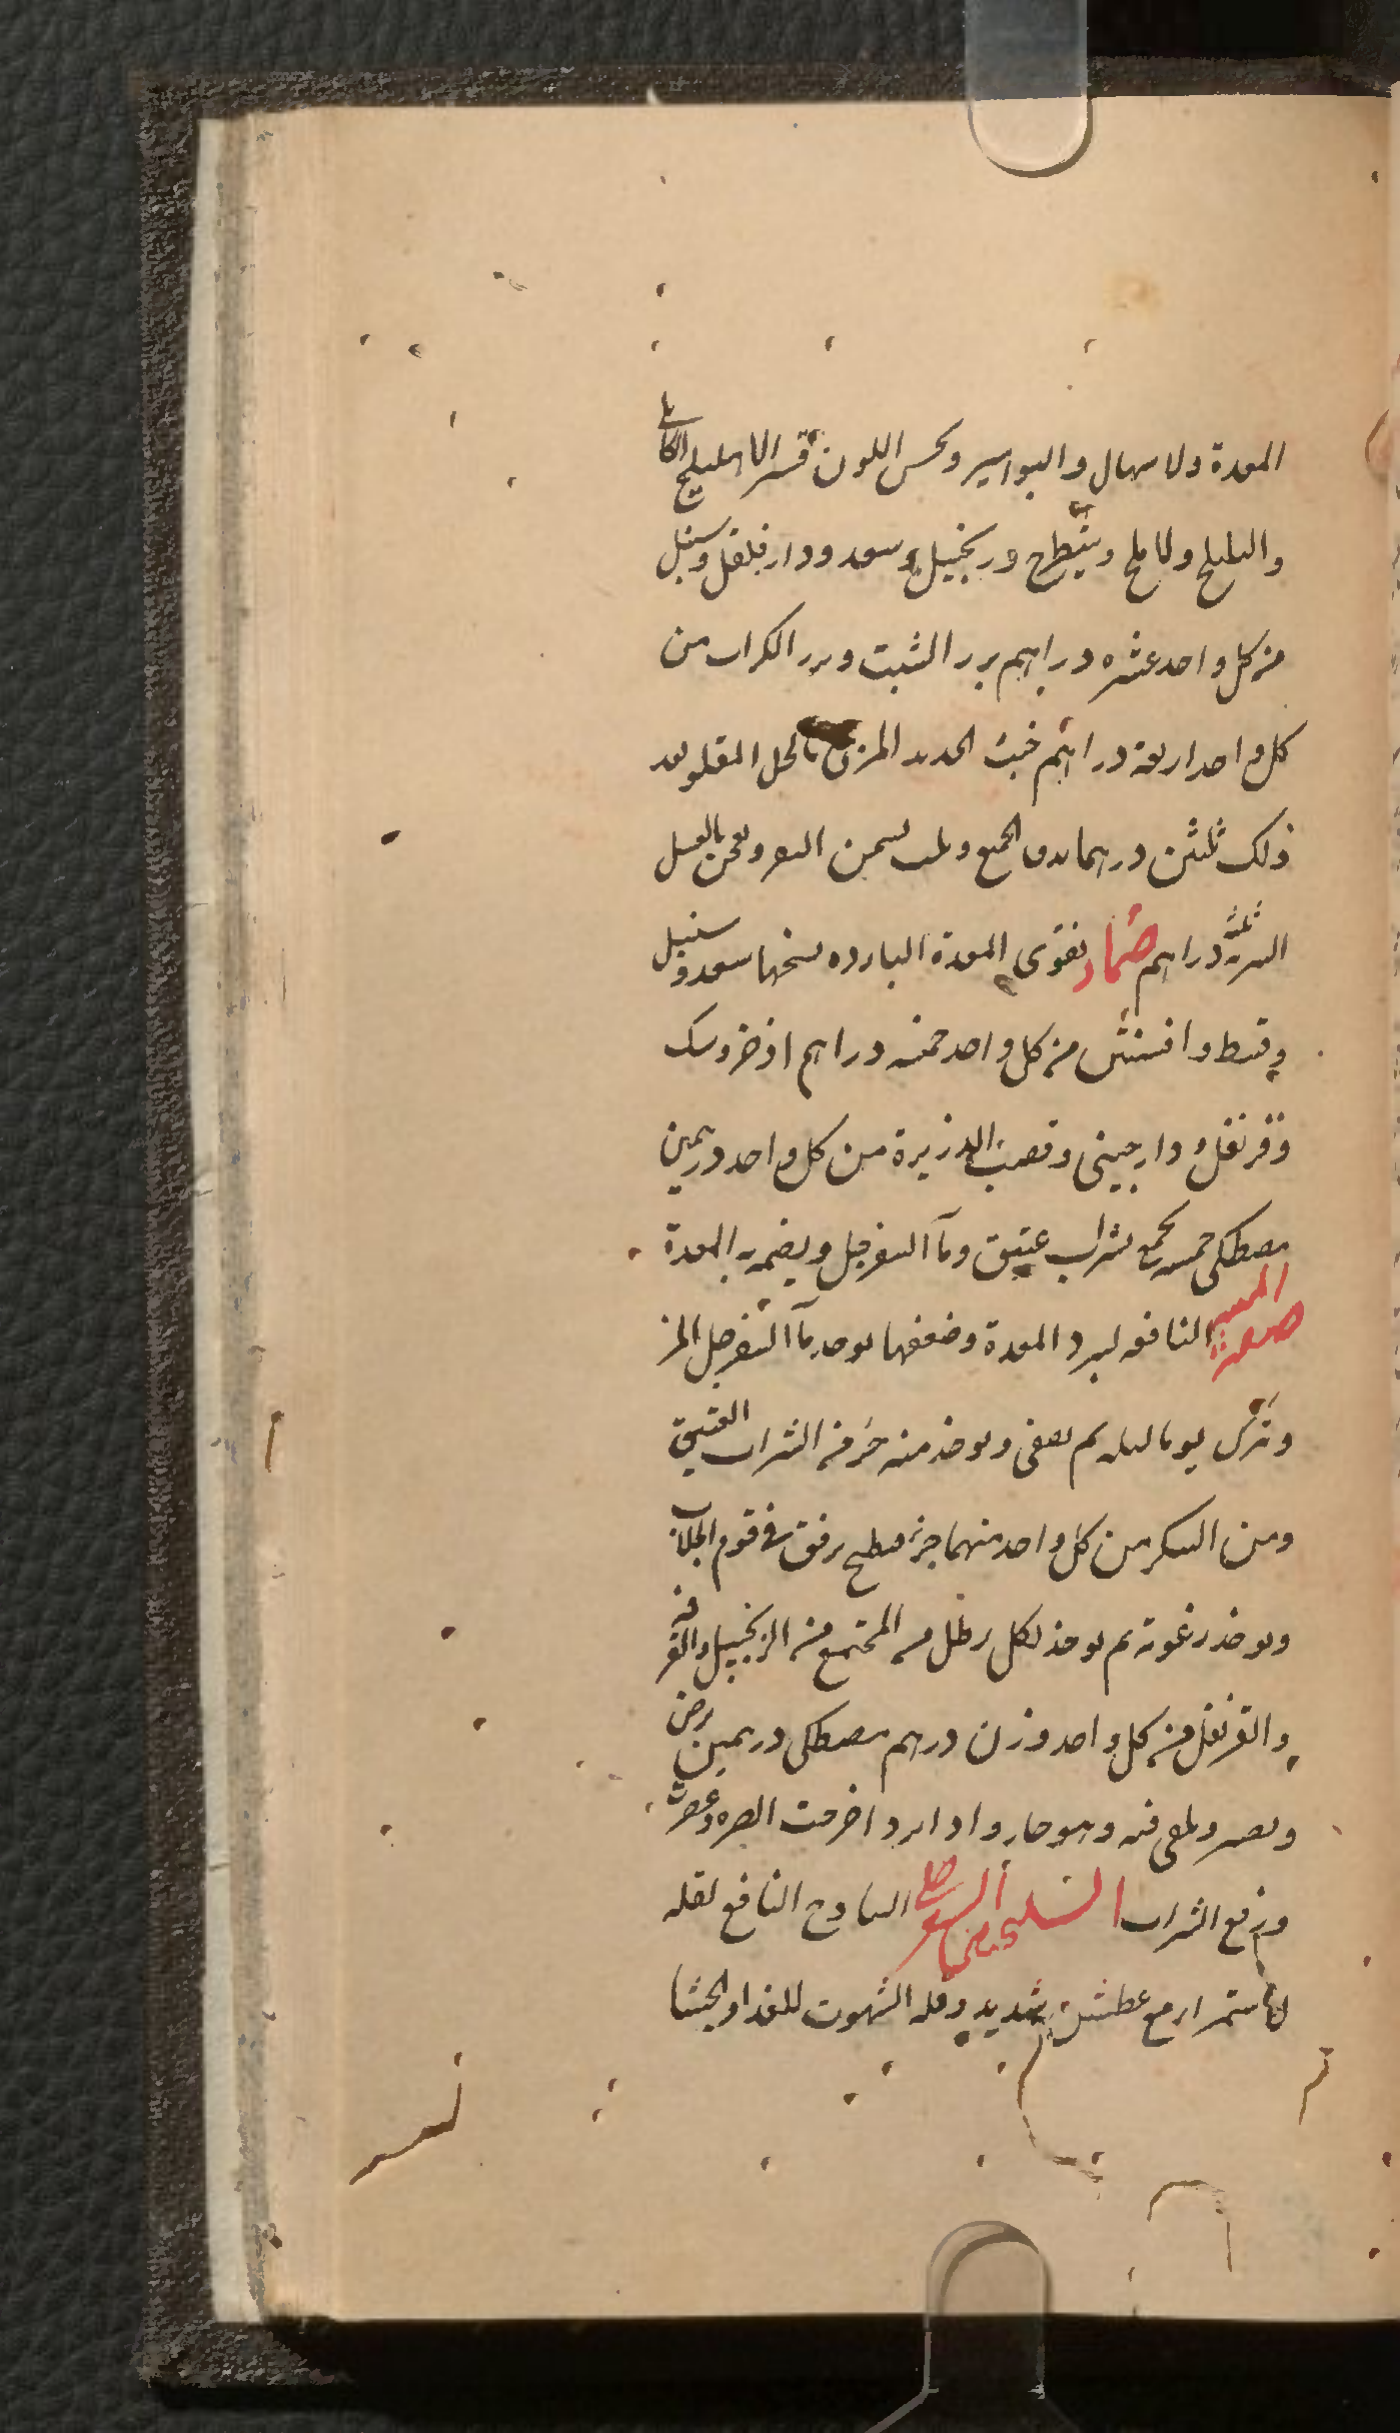 المعدة ولاسهال والبواسير وىحسن اللون قشر الاهليلج الكابلي
والبليلج ولاملج وشيطرج وزنجبيل وسعد ودارفلفل وسنبل
من كل واحد عشره دراهم بزر الشبت وبزر الكراث من
كل واحد اربعة دراهم خبث الحديد المربى بالخل المقلو بعد
ذلك ثلثين درهما يدق الجميع ويلت بسمن البقر ويعجن بالعسل
الشربة ثلثة دراهم ضماد يقوى المعدة البارده يسخنها سعد وسنبل
وقسط وافسنتين من كل واحد خمسة دراهم اذخر وسك
وقرنفل ودارجيني وقصب الذريرة من كل واحد درهمين
مصطكى خمسه يجمع بشراب عتيق وماء السفرجل ويضمد به المعدة
صفة الميبه النافعه لبرد المعدة وضعفها يوخذ ماء السفرجل المز
ويترك يوما وليله ثم يصفى ويوخذ منه جز من الشراب العتيق
ومن السكر من كل واحد منهما جز فيطبخ برفق فى قوام الجلاب
ويوخذ رغوته ثم يوخذ لكل رطل من المجتمع من الزنجبيل والقرفه
والقرنفل من كل واحد وزن درهم مصطكى درهمين يرض
ويصر ويلقى فيه وهو حار واذا برد اخرجت الصره وعصرت
ورفع الشراب السكنجبين السفرجلى الساذج النافع لقله
لاستمرار مع عطش شديد وقله الشهوت للغذا والجشا